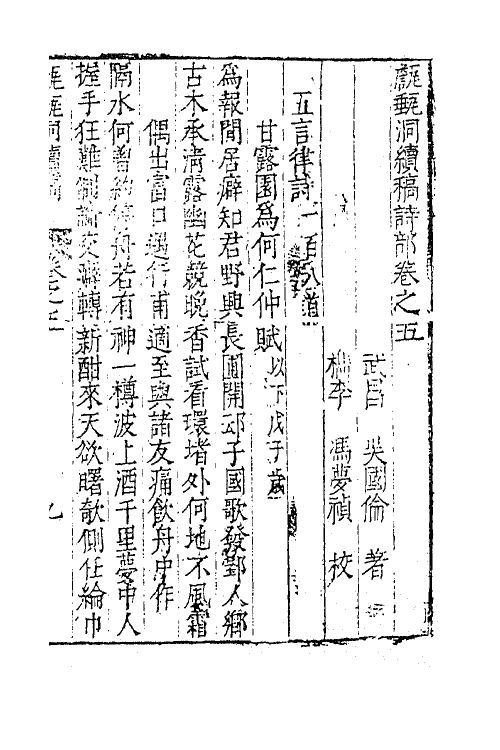 甔甀洞續稿詩部卷之五
武昌 吳國倫 著
檇李 馮夢禎 校
五言律詩一百八道
甘露園為何仁仲賦以下戊子歲
為報閒居癖知君野興長圃開邵子國歌發郢人鄉
古木承清露幽花競晚香試看環堵外何地不風霜
偶出富口遇行甫適至與諸友痛飲舟中作
隔水何曾約停舟若有神一樽波上酒千里夢中人
握手狂難論交癖轉新酣來天欲曙欹側任綸巾
卷之五 九